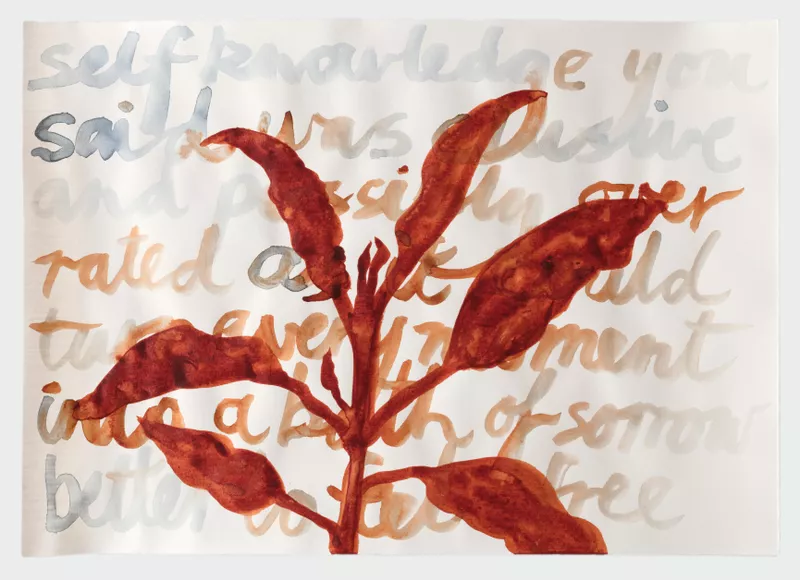 self knowledge you
said was elusive
and possibly over
rated as it could
turn every moment
into a bath of sorrow
better to feel free